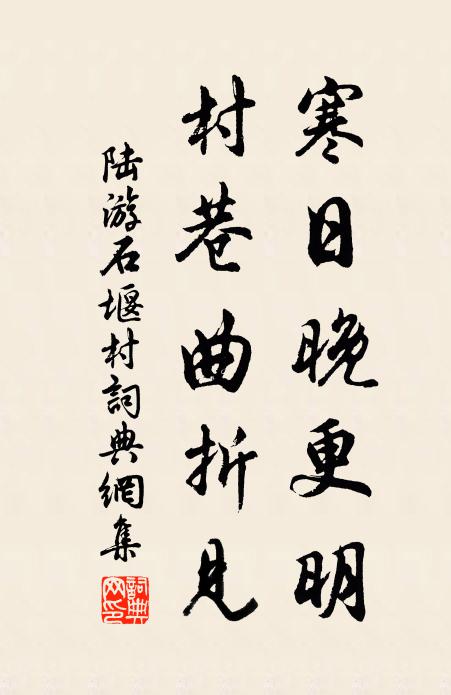 寒日晚更明
村巷曲折見
陸游石堰村詞典網集
詞典網印